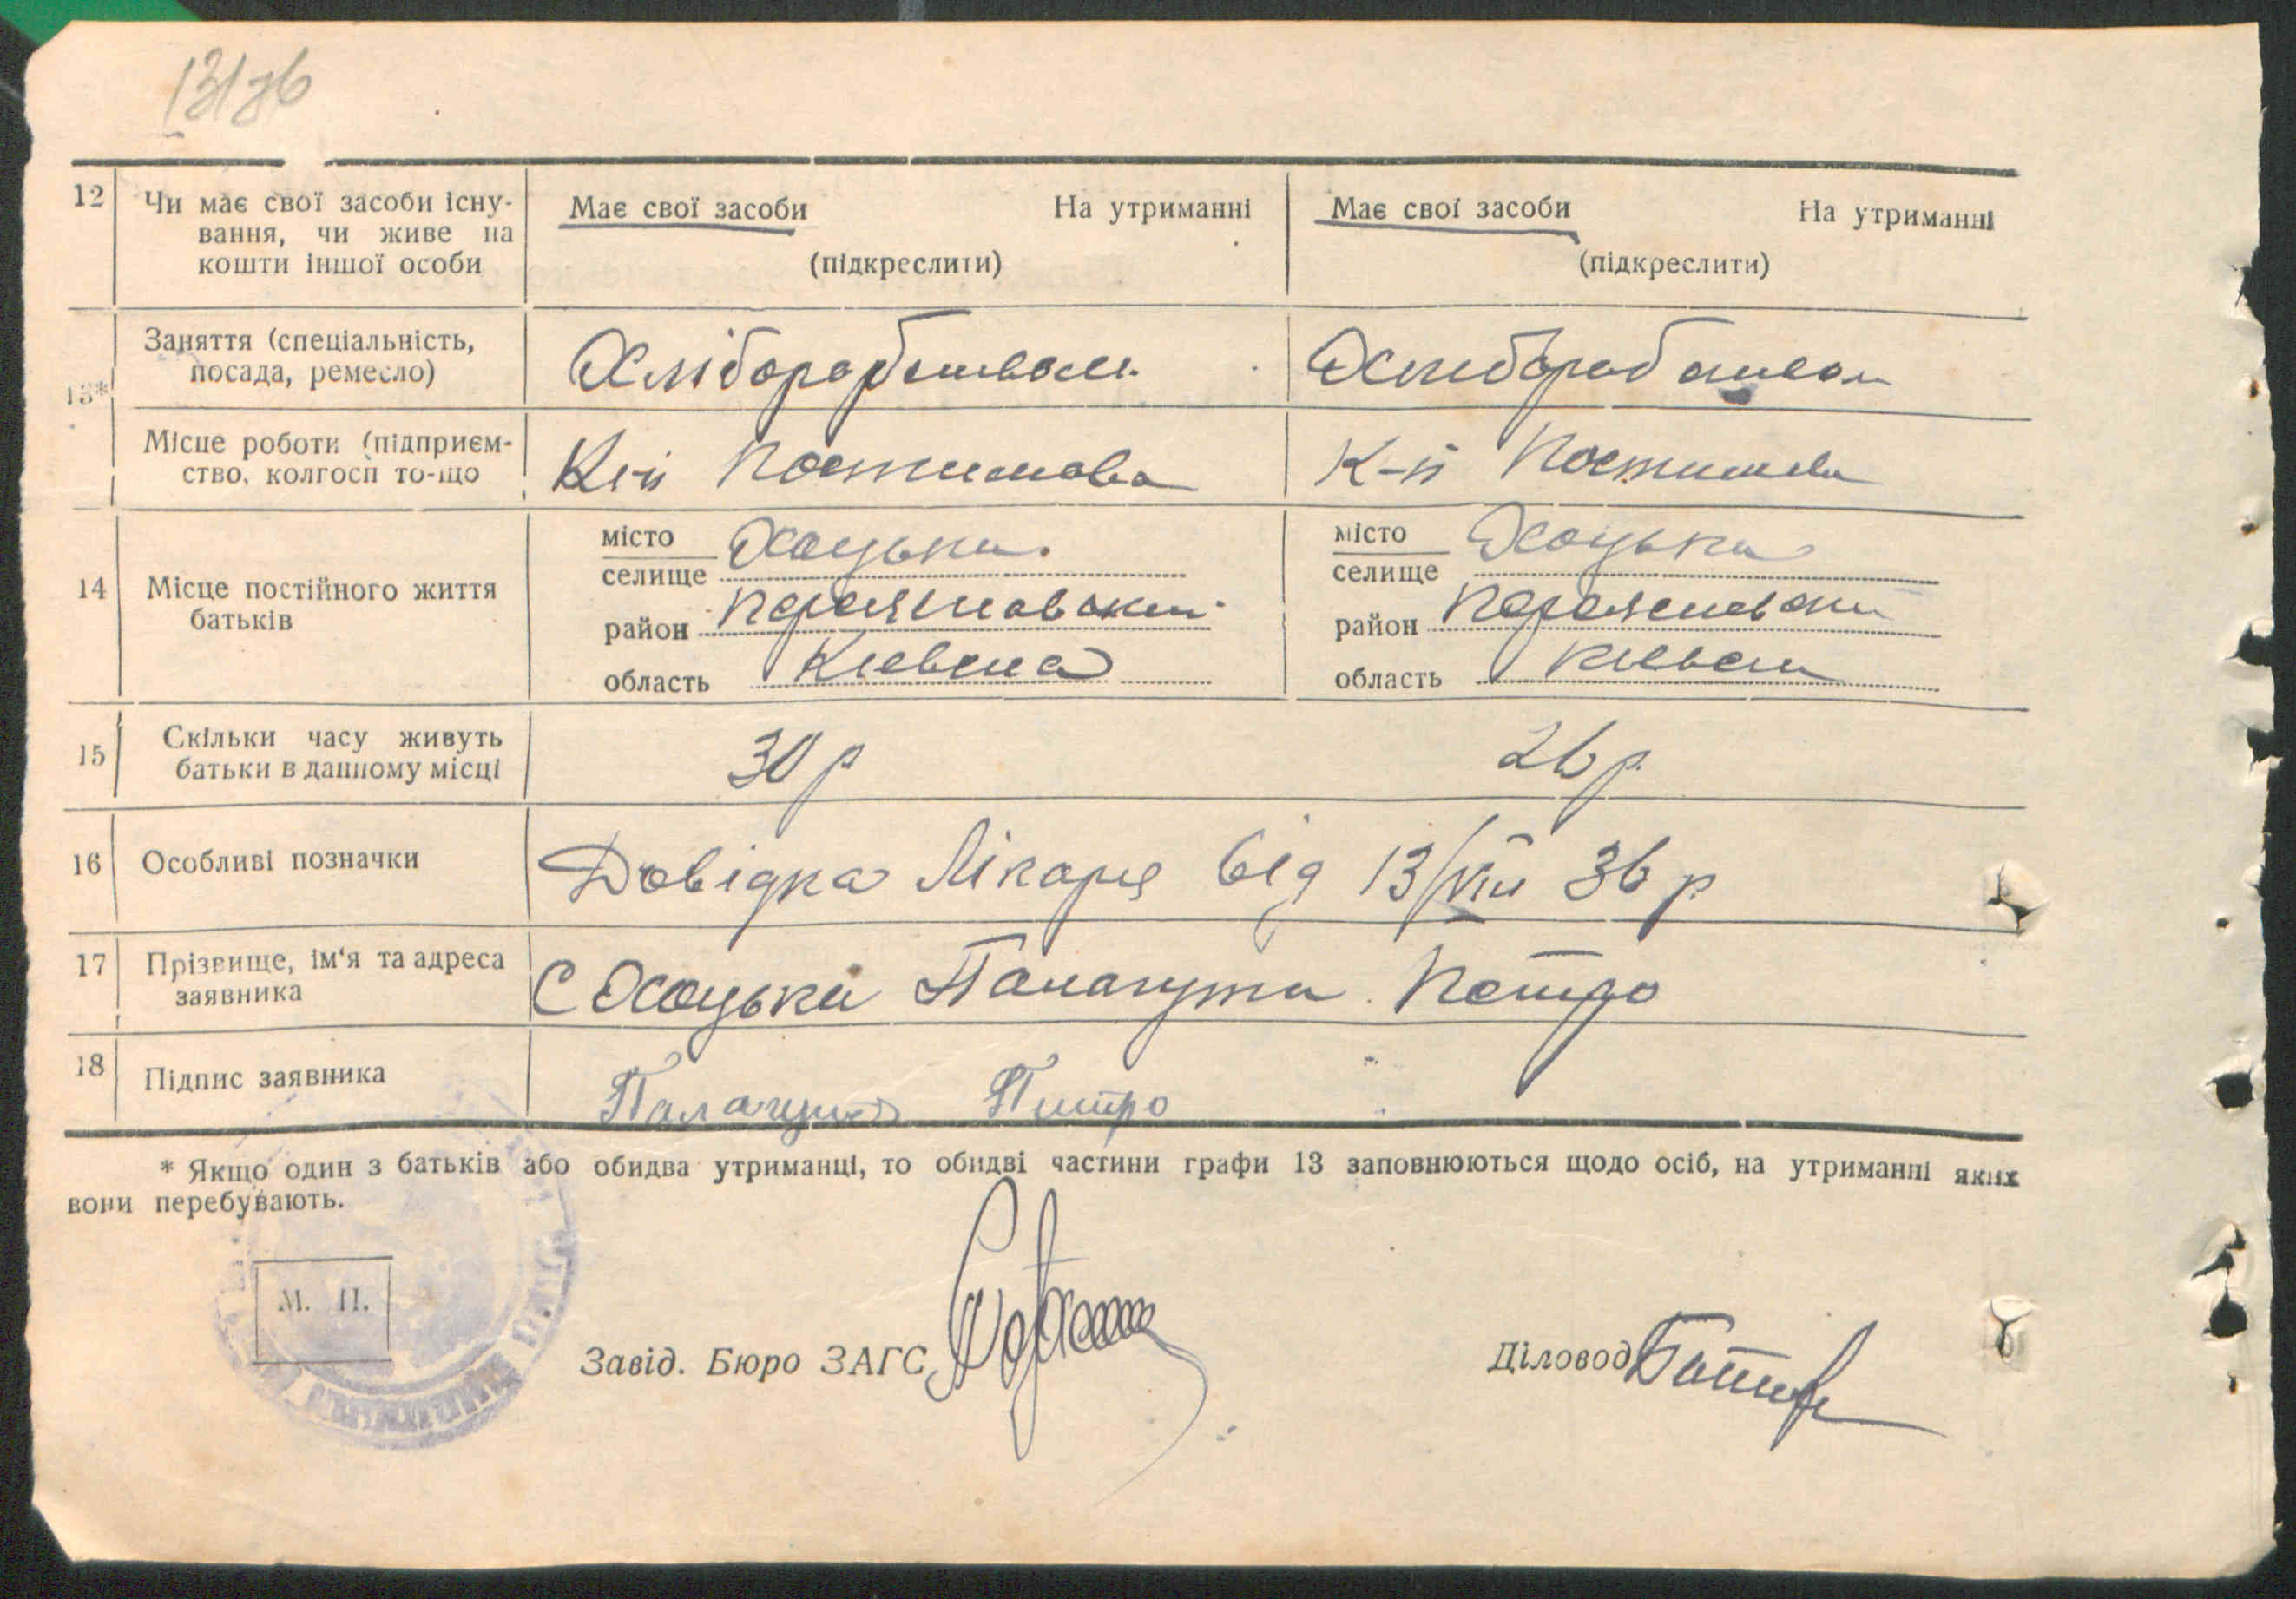 12 Чи має свої засоби існу-
вання, чи живе на
кошти іншої особи
Має свої засоби На утриманні
(підкреслити)
Має свої засоби На утриманні
(підкреслити)
13*
Заняття (спеціальність,
посада, ремесло)
Хліборобством
Хліборобством
Місце роботи (підприєм-
ство, колгосп то-що
К-п Постишева
К-п Постишева
14 Місце постійного життя
батьків
місто
селище Хоцьки
район Переяславский
область Киевска
місто
селище Хоцьки
район Переяславски
область Киевск
15 Скільки часу живуть
батьки в данному місці
30 р
26 р
16 Особливі позначки
Довідка Лікаря від 13/VIII 36 р
17 Прізвище, ім'я та адреса
заявника
С Хоцьки Палагута Петро
18 Підпис заявника
Палагута Питро
* Якщо один з батьків або обидва утриманці, то обидві частини графи 13 заповнюються щодо осіб, на утриманні яких
вони перебувають.
М. П.
Завід. Бюро ЗАГС
Діловод